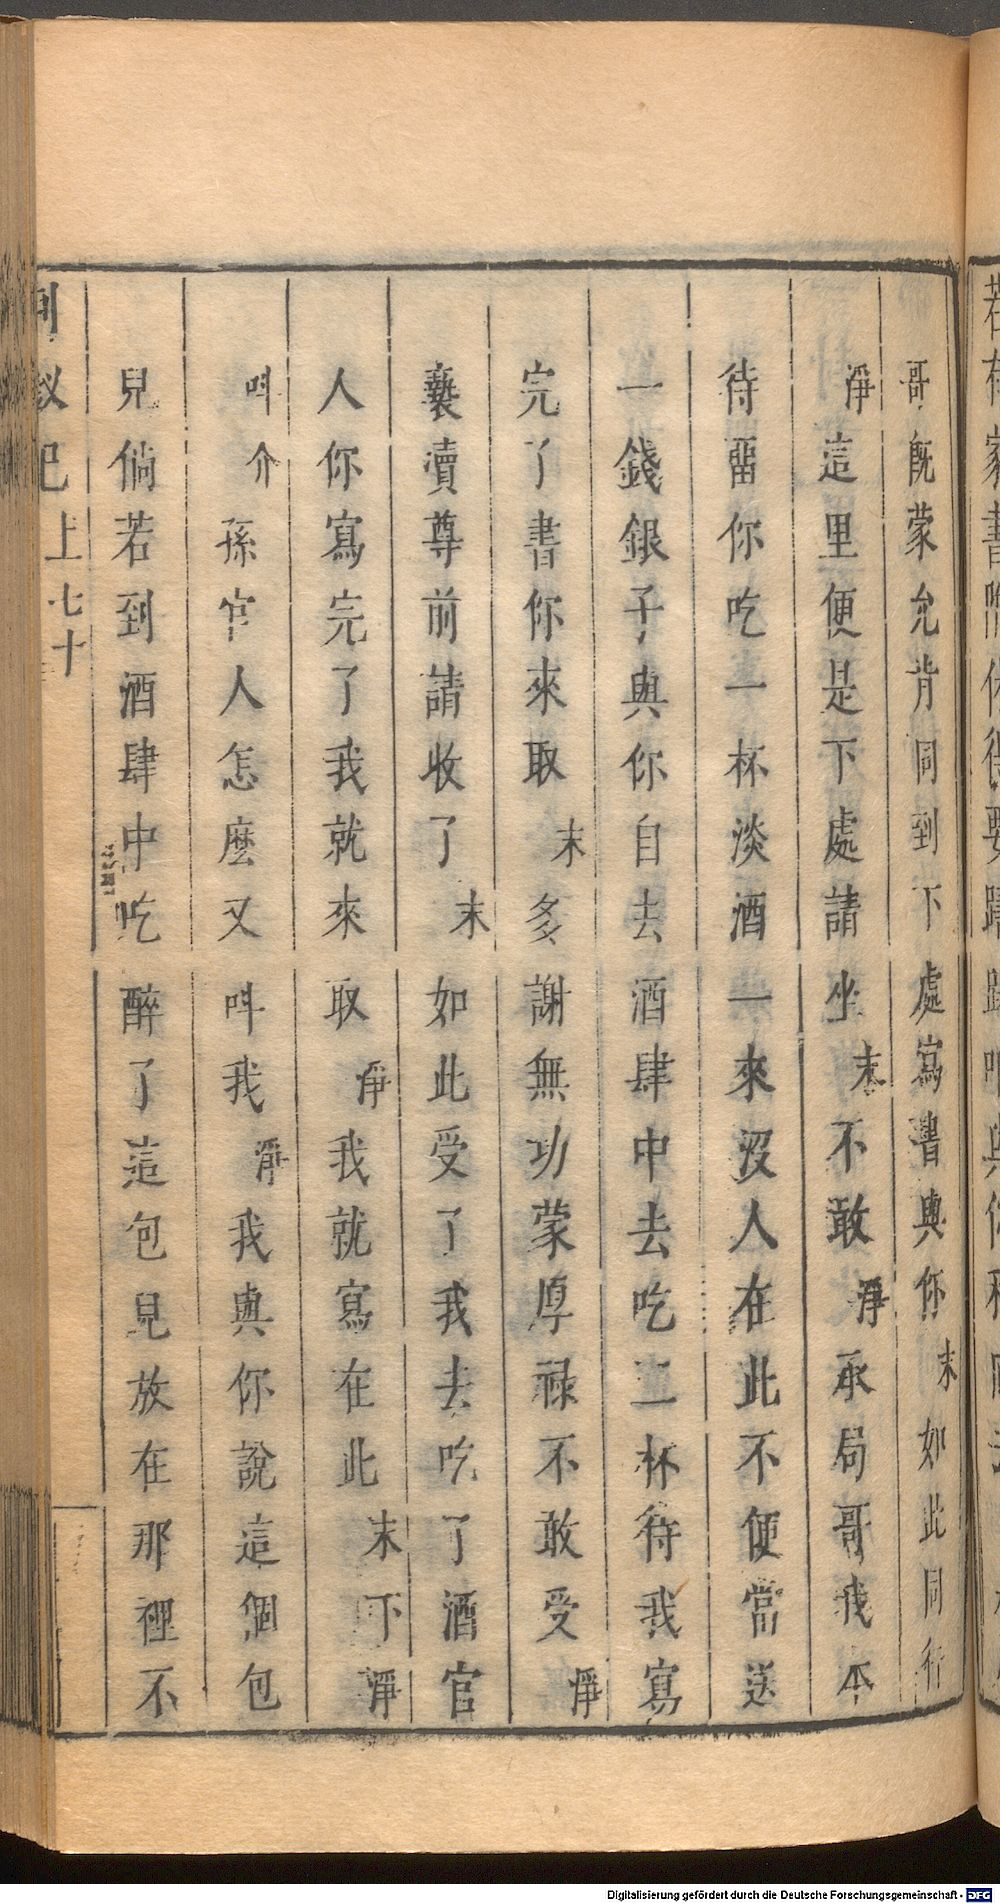 哥既蒙允肯同到下處寫書與你末如此同行
淨這里便是下處請坐末不敢淨承局哥我本
待畱你吃一杯淡酒一來沒人在此不便當送
一錢銀子與你自去酒肆中去吃二杯待我寫
完了書你來取末多謝無功蒙厚祿不敢受淨
褻瀆尊前請收了末如此受了我去吃了酒官
人你寫完了我就來取淨我就寫在此末下淨
叫介孫官人怎麼又叫我淨我與你說這個包
兒倘若到酒肆中吃醉了這包兒放在那裡不
上 七十
Digitalisierung gefördert durch die Deutsche Forschungsgemeinschaft - DFG